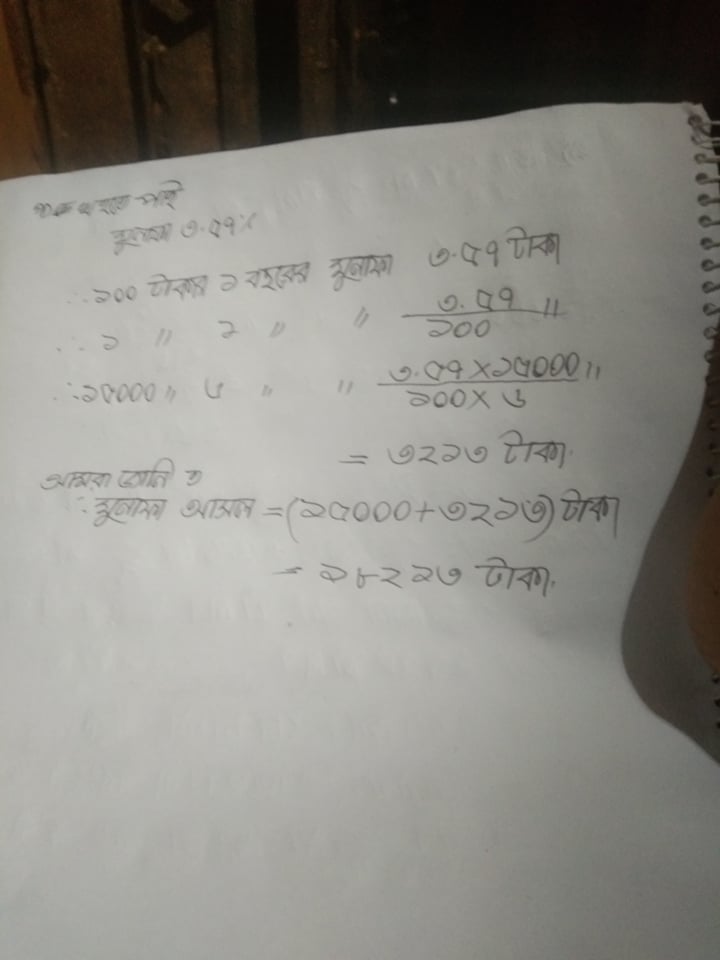 হতে পাই
মুনাফা ৩.৫৭%
∴ ১০০ টাকার ১ বছরের মুনাফা ৩.৫৭ টাকা
∴ ১ " ১ " " ৩.৫৭/১০০ "
∴ ১৫০০০ " ৬ " " ৩.৫৭×১৫০০০/১০০×৬ "
= ৩২১৩ টাকা.
আমরা জানি
∴ মুনাফা আসল = (১৫০০০+৩২১৩) টাকা
= ১৮২১৩ টাকা.